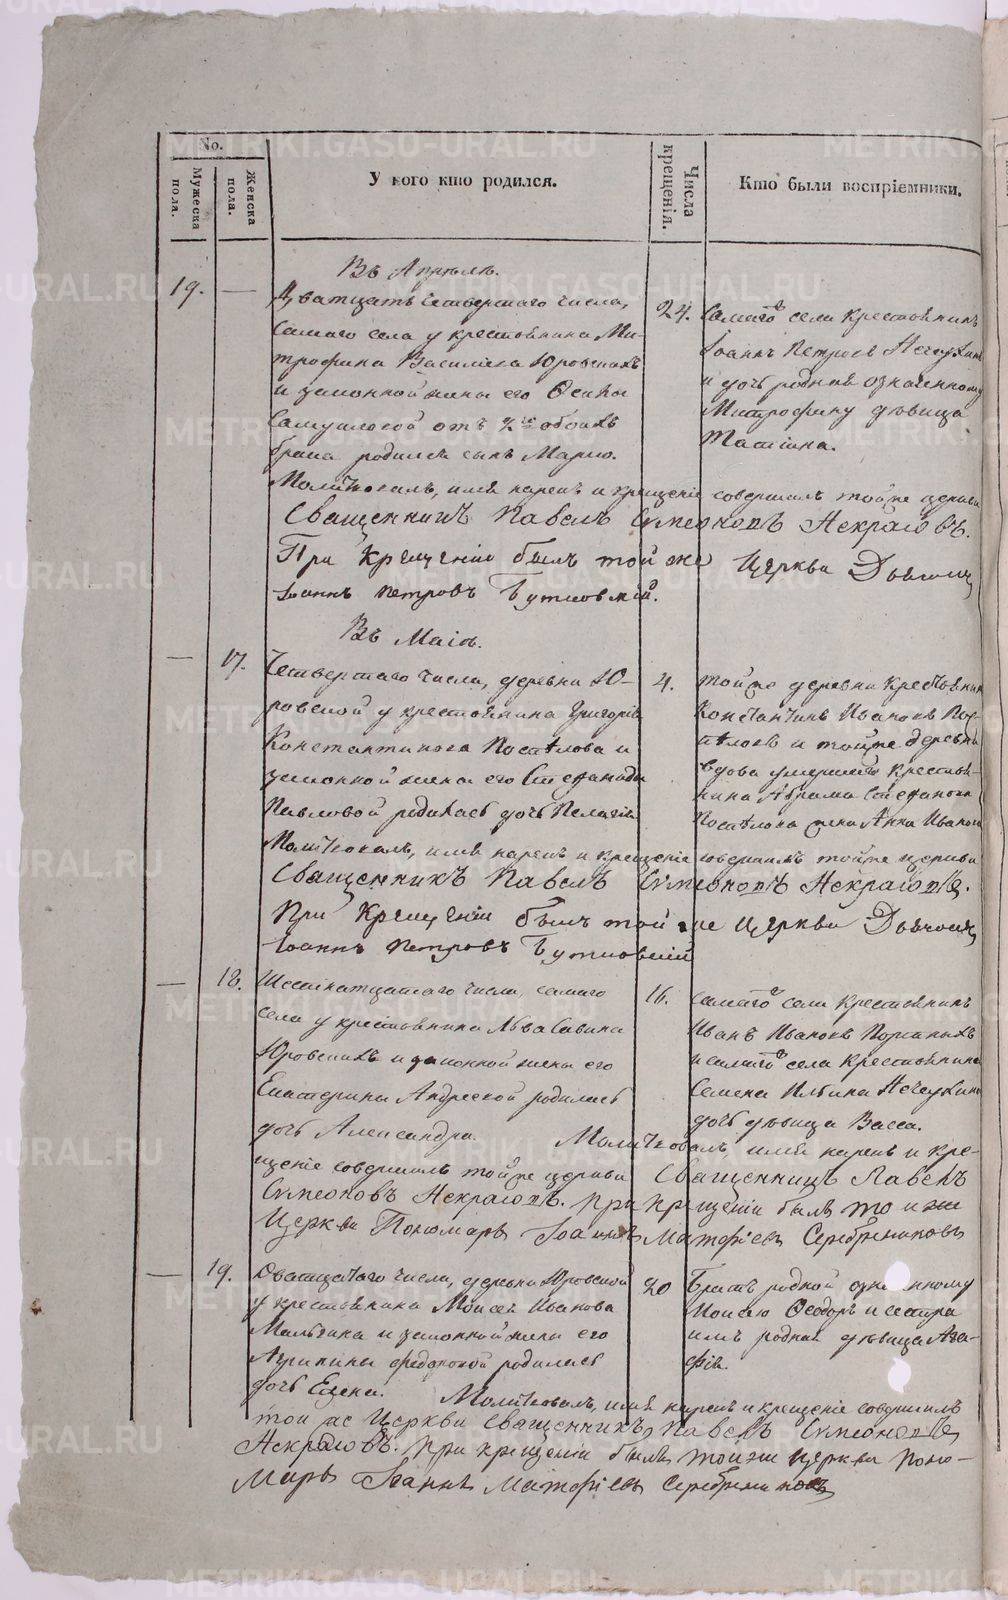 No.
Мужеска пола.
Женска пола.
У кого кто родился.
Числа крещенія.
Кто были воспріемники.
Въ Апрѣлѣ.
19. —
Дватцать четвертаго числа,
самаго села у крестьянина Ми-
трофана Василева Юровскихъ
и законной жены его
отъ 2го обоихъ
брака родился сынъ Марко.
24. Самаго села крестьянинъ
Іоаннъ Петровъ
и дочь родная означенному
Митрофану дѣвица
Татіана.
Молитвовалъ, имя нарекъ и крещеніе совершилъ тойже церкви
Священникъ Павелъ Симеоновъ Некрасовъ.
При Крещеніи былъ той же Церкви Дьячокъ
Іоаннъ Петровъ Бутковскій.
Въ Маіѣ.
— 17.
Четвертаго числа, деревни Ю-
ровской у крестьянина Григорія
Константинова Поспѣлова и
законной жены его Стефаниды
Павловой родилась дочь Пелагія
4. Тойже деревни Крестьянинъ
Константинъ Ивановъ Пос-
пѣловъ и тойже деревни
вдова умершаго крестья-
нина Абрама Стефанова
Поспѣлова жена Анна Иванова
Молитвовалъ, имя нарекъ и крещеніе совершилъ тойже церкви
Священникъ Павелъ Симеоновъ Некрасовъ.
При Крещеніи былъ той же Церкви Дьячокъ
Іоаннъ Петровъ Бутковскій
— 18.
Шестнатцатаго числа, самаго
села у крестьянина Льва Савина
Юровскихъ и законной жены его
Екатерины Андреевой родилась
дочь Александра.
16. Самаго села Крестьянинъ
Иванъ Ивановъ
и самаго села Крестьянина
Семена Ильина
дочь дѣвица Васса.
Молитвовалъ, имя нарекъ и кре-
щеніе совершилъ тойже церкви Священникъ Павелъ
Симеоновъ Некрасовъ. При крещеніи былъ той же
Церкви Пономарь Іоаннъ Матфіевъ Серебрениковъ
— 19.
Дватцатаго числа, деревни Юровской
у крестьянина Моисея Иванова
Мальгина и законной жены его
Агрипины Федоровой родилась
дочь Елена.
20 Братъ родной означенному
Моисею Ѳеодоръ и сестра
имъ родная дѣвица Ага-
фія.
Молитвовалъ, имя нарекъ и крещеніе совершилъ
той же Церкви Священникъ Павелъ Симеоновъ
Некрасовъ. При крещеніи былъ той же Церкви Поно-
марь Іоаннъ Матфіевъ Серебрениковъ
METRIKI.GASO-URAL.RU